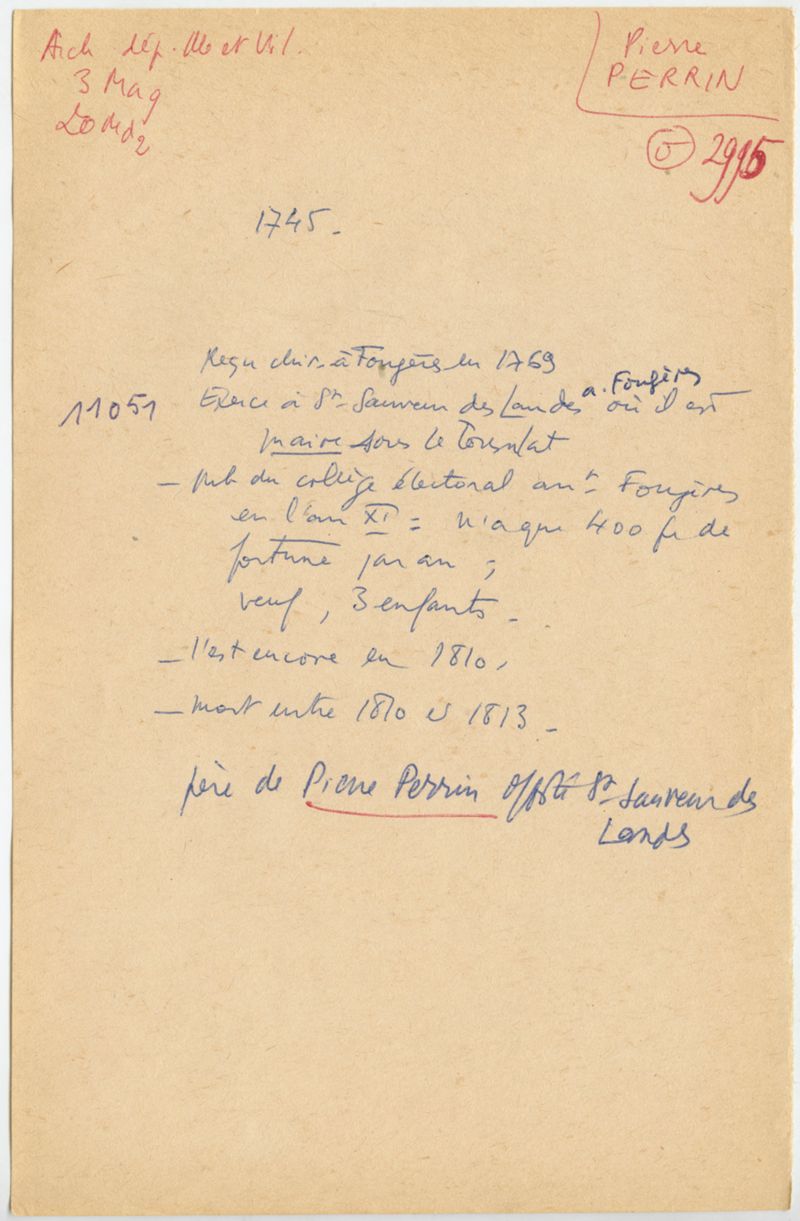 Arch dép. Ille et Vil.
3 Mag
20 Md2
Pierre
PERRIN
2995
1745.
Reçu chir. à Fougères en 1769
11051
Exerce à St-Sauveur des Landes a. Fougères où il est
maire sous le Consulat
— mb du collège électoral arrt Fougères
en l'an XI = n'a que 400 fr de
fortune par an ;
veuf, 3 enfants.
— l'est encore en 1810,
— mort entre 1810 et 1813.
père de Pierre Perrin St-Sauveur des
Landes